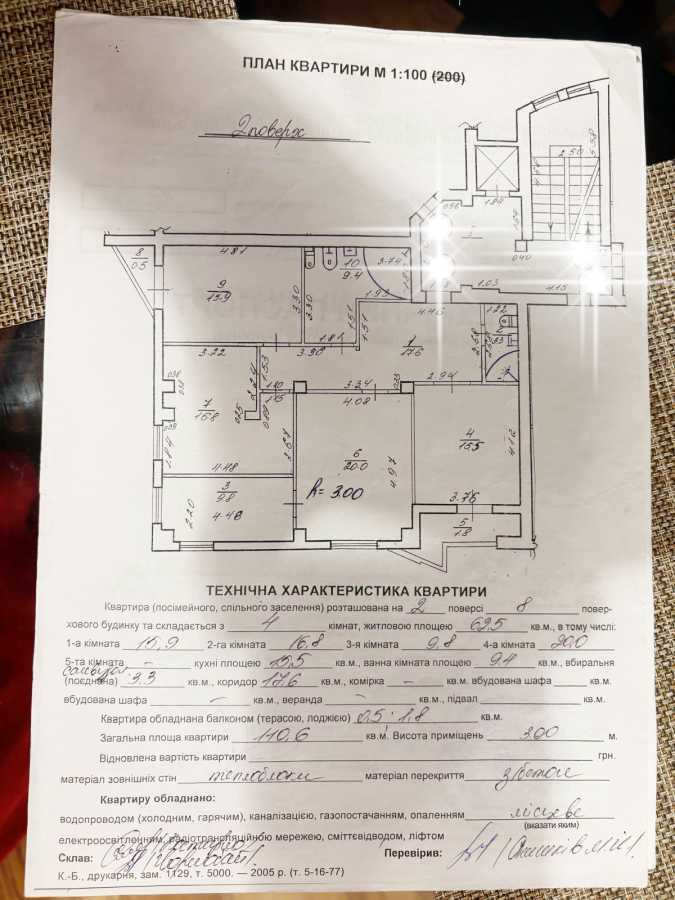 ПЛАН КВАРТИРИ М 1:100 (200)
2 поверх
2.50
5.58
1.84
0.56
8
0.5
4.81
9
15.9
3.30
3.30
10
9.4
3.74
1.93
1.51
1.51
1.81
4.46
1
17.6
0.40
1.03
4.15
1.22
2
3.3
2.58
3.22
3.90
1.53
2.24
1.10
1.15
3.24
0.23
2.94
7
16.8
0.25
0.89
1.84
4.48
3.67
4.08
6
20.0
4.97
h= 3.00
4
15.5
4.12
3.75
3
9.8
2.20
4.48
5
1.8
ТЕХНІЧНА ХАРАКТЕРИСТИКА КВАРТИРИ
Квартира (посімейного, спільного заселення) розташована на 2 поверсі 8 повер-
хового будинку та складається з 4 кімнат, житловою площею 62,5 кв.м., в тому числі:
1-а кімната 15,9 2-га кімната 16,8 3-я кімната 9,8 4-а кімната 20,0
5-та кімната – кухні площею 15,5 кв.м., ванна кімната площею 9.4 кв.м., вбиральня
санвузол
(поєднана) 3.3 кв.м., коридор 17,6 кв.м., комірка – кв.м. вбудована шафа кв.м.
вбудована шафа – кв.м., веранда – кв.м., підвал кв.м.
Квартира обладнана балконом (терасою, лоджією) 0,5; 1,8 кв.м.
Загальна площа квартири 140,6 кв.м. Висота приміщень 3.00 м.
Відновлена вартість квартири грн.
матеріал зовнішніх стін теплоблоки матеріал перекриття з/бетон
Квартиру обладнано:
водопроводом (холодним, гарячим), каналізацією, газопостачанням, опаленням місцеве
(вказати яким)
електроосвітленням, радіотрансляційною мережею, сміттєвідводом, ліфтом
Склав: Перевірив:
К.-Б., друкарня, зам. 1129, т. 5000. — 2005 р. (т. 5-16-77)